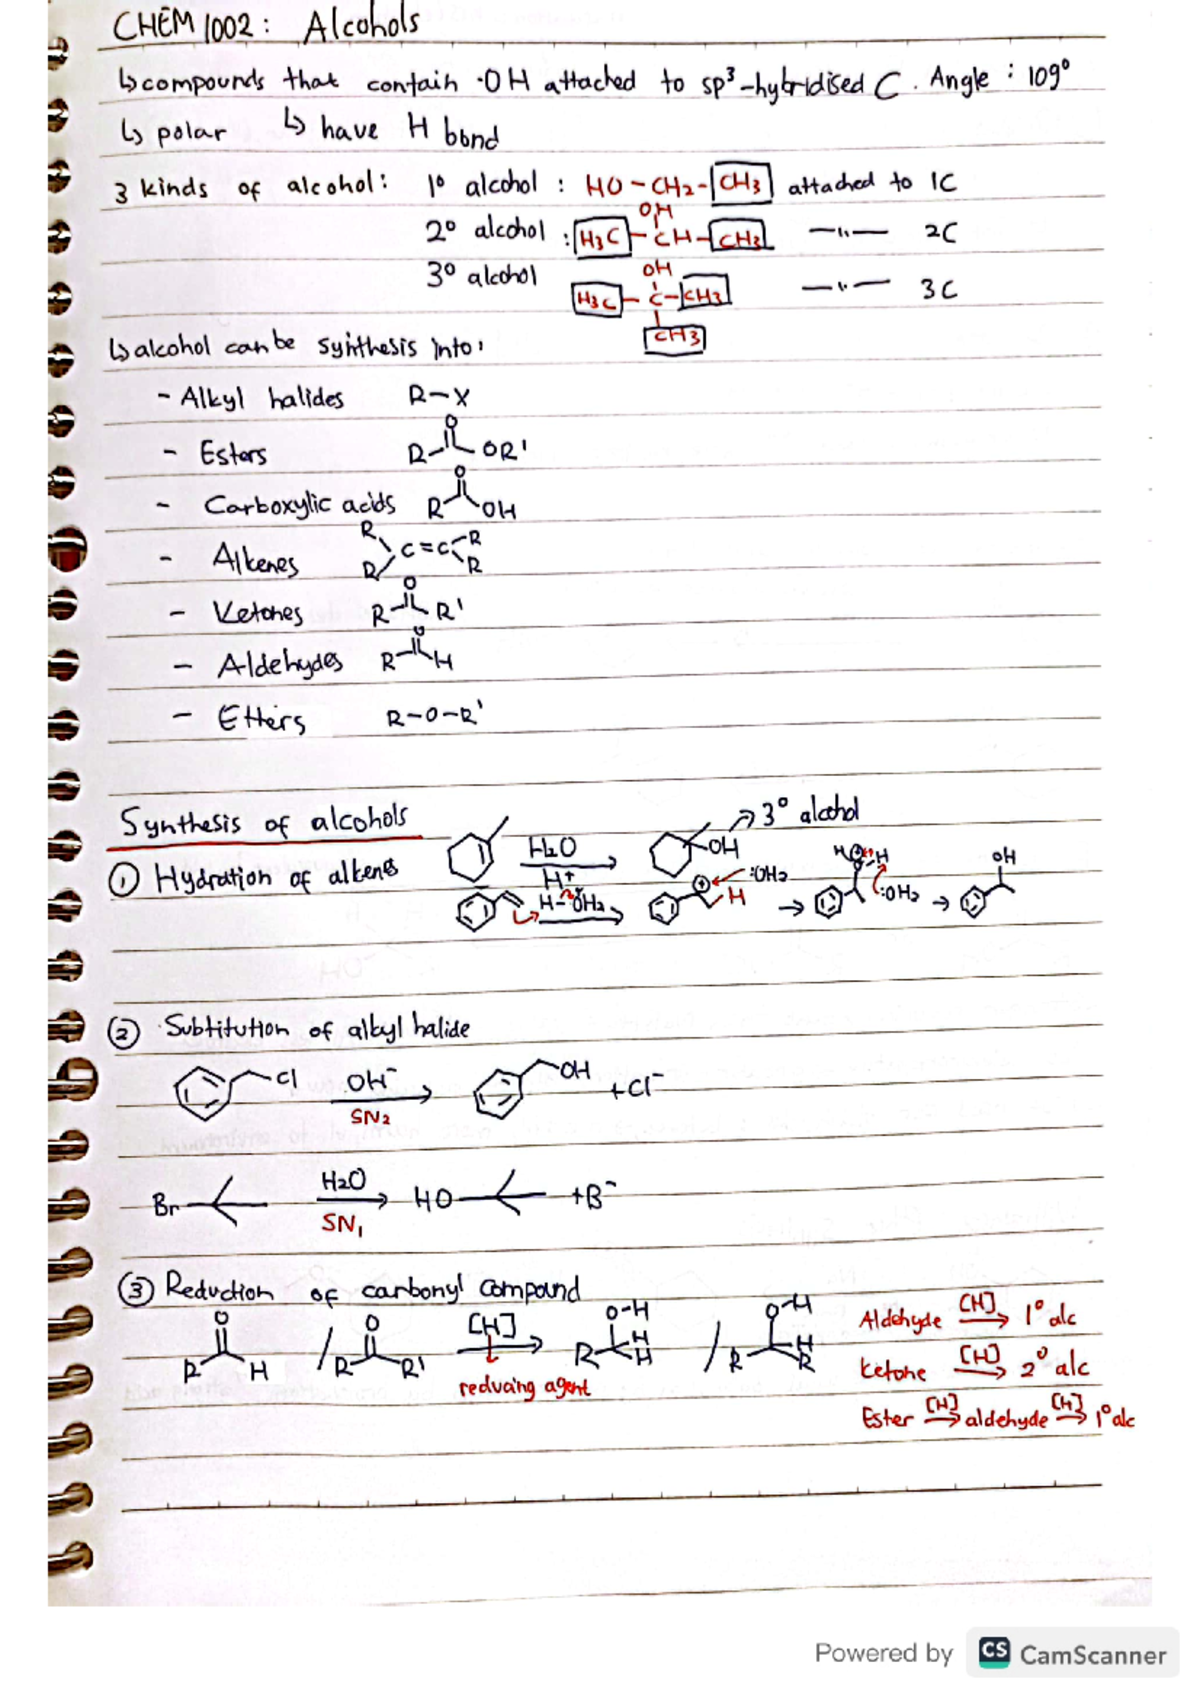 CHEM 1002: Alcohols
↳ compounds that contain -OH attached to sp³-hybridised C. Angle: 109°
↳ polar ↳ have H bond
3 kinds of alcohol: 1° alcohol : HO-CH2-CH3 attached to 1C
OH
2° alcohol : H3C-CH-CH3 —"— 2C
3° alcohol OH
H3C-C-CH3 —"— 3C
CH3
↳ alcohol can be synthesis into:
- Alkyl halides R-X
- Esters R O OR'
- Carboxylic acids R O OH
- Alkenes R R C=C R R
- Ketones R O R'
- Aldehydes R O H
- Ethers R-O-R'
Synthesis of alcohols
① Hydration of alkenes H2O H+ OH → 3° alcohol
H-OH2 → ⊕ :OH2 H → H O H :OH2 → OH
② Subtitution of alkyl halide
Cl OH⁻ → OH +Cl⁻
SN2
Br H2O → HO +B⁻
SN1
③ Reduction of carbonyl compound
O R H / O R R' [H] → O-H R H H / O-H R H R
reducing agent
Aldehyde [H] → 1° alc
ketone [H] → 2° alc
Ester [H] → aldehyde [H] → 1° alc
Powered by CS CamScanner